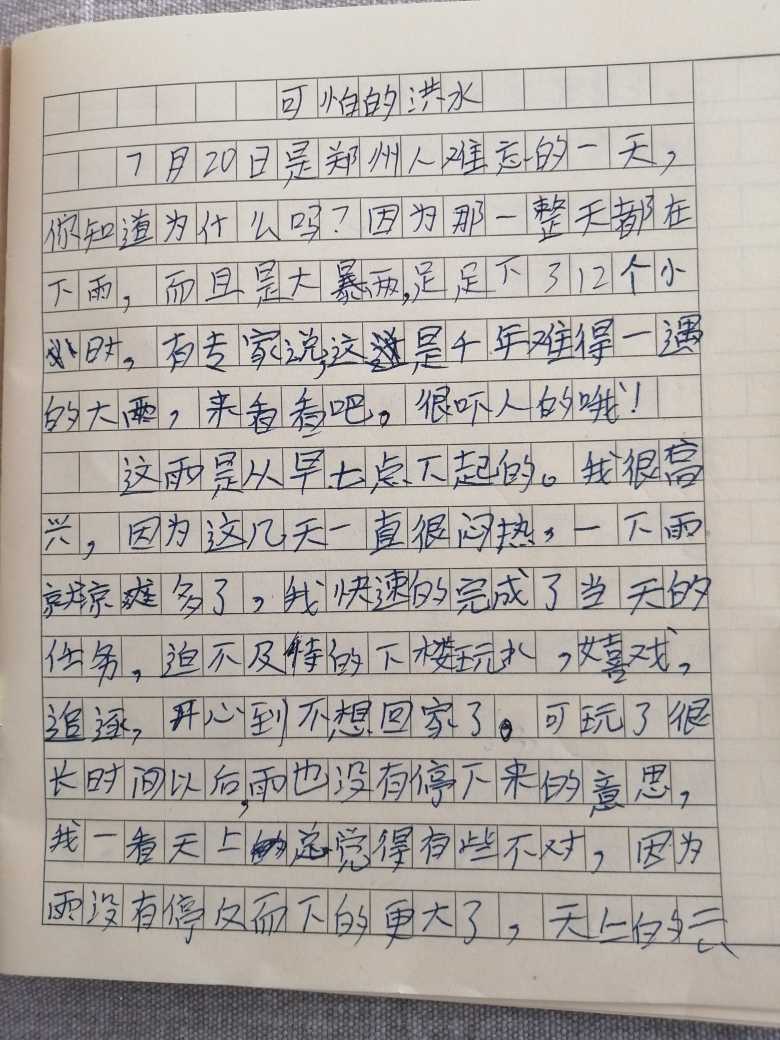 可怕的洪水
7月20日是郑州人难忘的一天，
你知道为什么吗？因为那一整天都在
下雨，而且是大暴雨，足足下了12个小
时。有专家说，这是千年难得一遇
的大雨，来看看吧。很吓人的哦！
这雨是从早七点下起的。我很高
兴，因为这几天一直很闷热，一下雨
就凉爽多了，我快速的完成了当天的
任务，迫不及待的下楼玩水，嬉戏，
追逐，开心到不想回家了。可玩了很
长时间以后，雨也没有停下来的意思，
我一看天上总觉得有些不对，因为
雨没有停反而下的更大了，天上的云